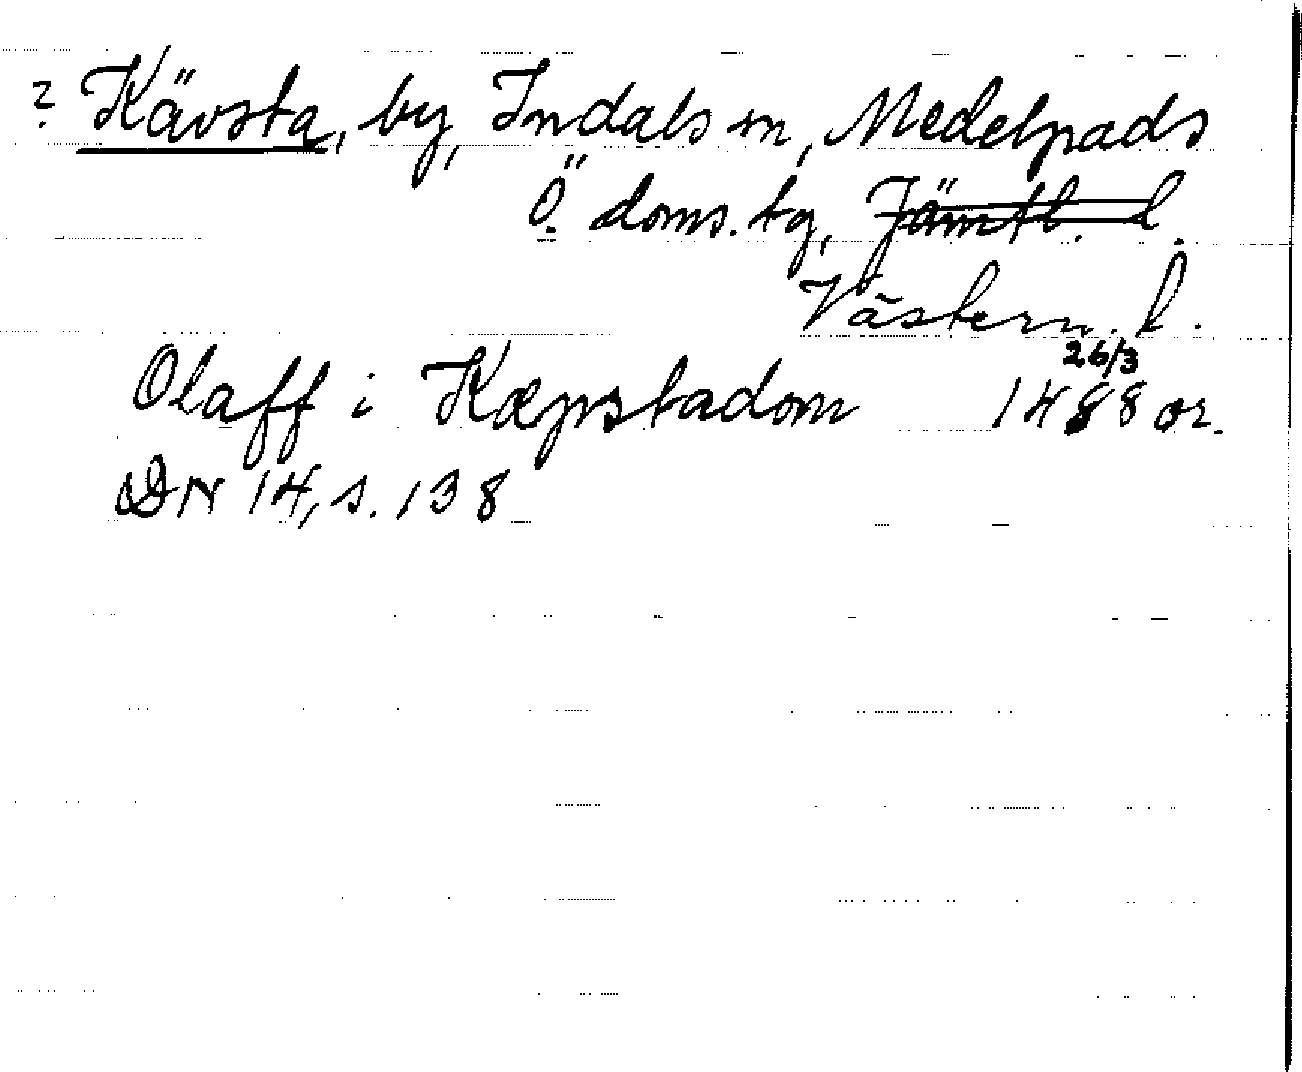 ? Kävsta, by, Indals sn, Medelpads
Ö. doms. tg, Jämtl. l.
Västern. l.
26/3
Olaff i Kæpstadom 1488 or.
DN 14, s. 138